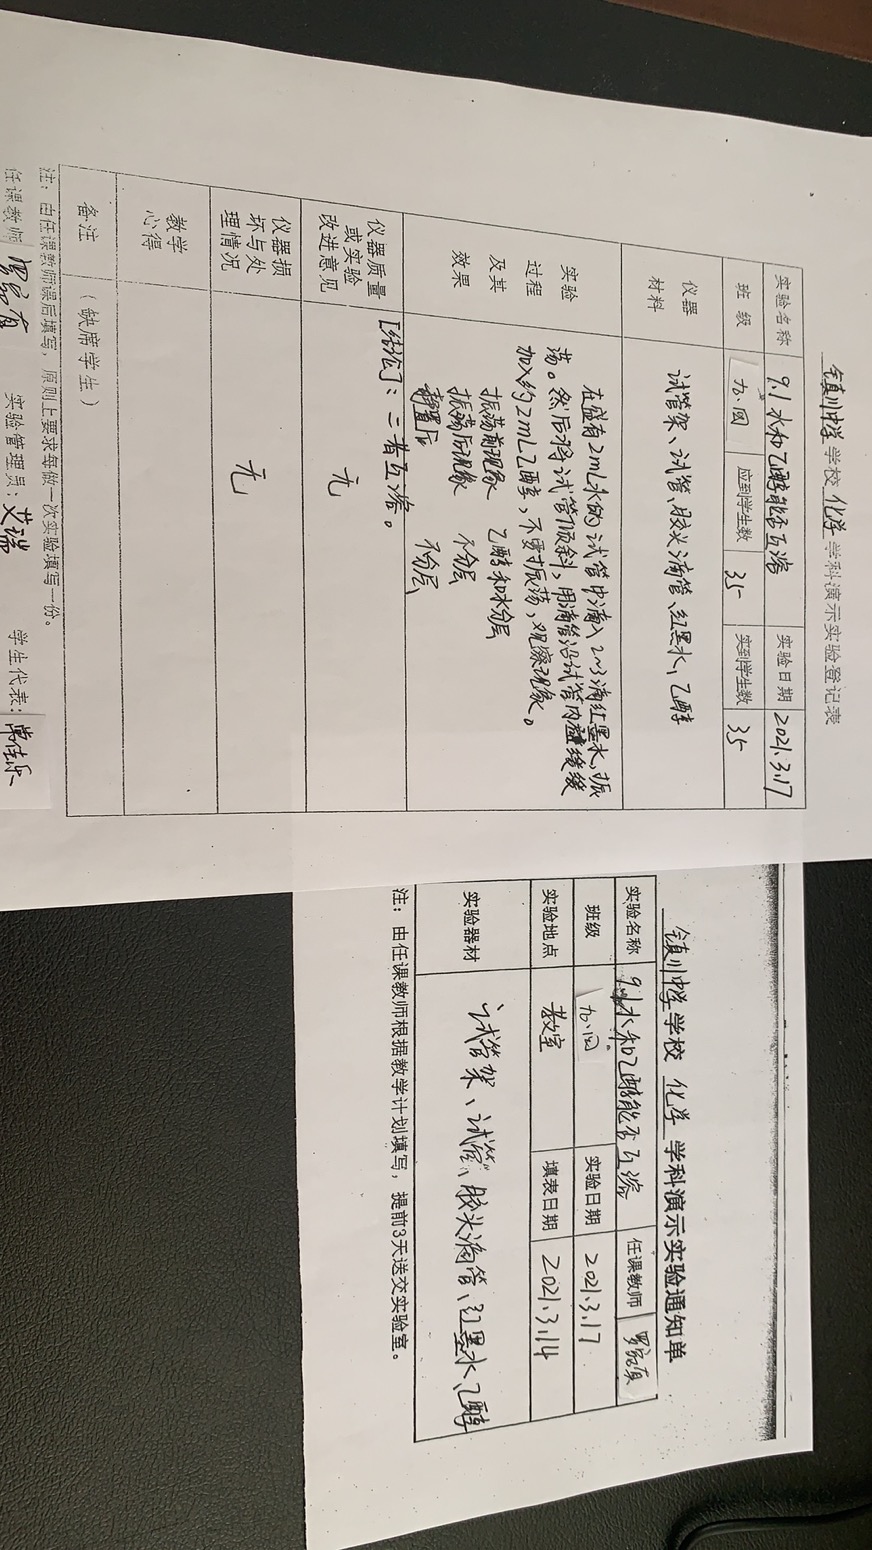 镇川中学学校 化学 学科演示实验登记表
实验名称 9.1水和乙醇能否互溶 实验日期 2021.3.17
班级 九.四 应到学生数 35 实到学生数 35
仪器
材料
试管架、试管、胶头滴管、红墨水、乙醇
实验
过程
及其
效果
在盛有2mL水的试管中滴入2~3滴红墨水,振
荡。然后将试管倾斜,用滴管沿试管内壁缓缓
加入约2mL乙醇,不要振荡,观察现象。
振荡前现象 乙醇和水分层
振荡后现象 不分层
静置后 不分层
[结论]:二者互溶。
仪器质量
或实验
改进意见
无
仪器损
坏与处
理情况
无
教学
心得
备注 (缺席学生)
注:由任课教师课后填写,原则上要求每做一次实验填写一份。
任课教师 实验管理员:艾瑞 学生代表:
镇川中学学校 化学 学科演示实验通知单
实验名称 9.1水和乙醇能否互溶 任课教师
班级 九.四 实验日期 2021.3.17
实验地点 教室 填表日期 2021.3.14
实验器材 试管架、试管、胶头滴管、红墨水、乙醇
注:由任课教师根据教学计划填写,提前3天送交实验室。